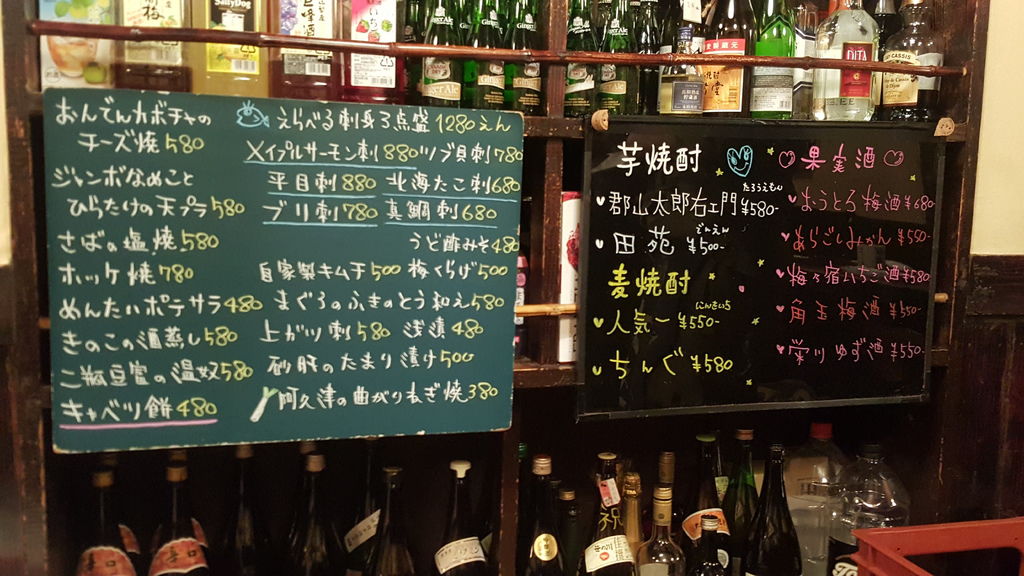 おんでんカボチャの
チーズ焼580
ジャンボなめこと
ひらたけの天プラ580
さばの塩焼580
ホッケ焼780
めんたいポテサラ480
きのこの酒蒸し580
二瓶豆富の温奴580
キャベツ餅480
えらべる刺身3点盛1280えん
メイプルサーモン刺880ツブ貝刺780
平目刺880 北海たこ刺680
ブリ刺780 真鯛刺680
うど酢みそ480
自家製キムチ500 梅くらげ500
まぐろのふきのとう和え580
上ガツ刺580 浅漬480
砂肝のたまり漬け500
阿久津の曲がりねぎ焼380
芋焼酎
たろうえもん
郡山太郎右ェ門¥580-
でんえん
田苑 ¥500-
麦焼酎
にんき
人気一¥550-
ちんぐ¥580
果実酒
おうとろ梅酒¥680
あらごしみかん¥550-
梅乃宿いちご酒¥580
角玉梅酒¥550-
栄川ゆず酒¥550-
Ginger Ale
DITA
CASSIS
辛口
辛口
祝